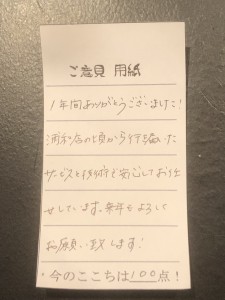 ご意見 用紙
1年間ありがとうございました!
浦和店の頃から行き届いた
サービスと技術と安心してお任
せしています。来年もよろしく
お願い致します!
今のここちは100点!